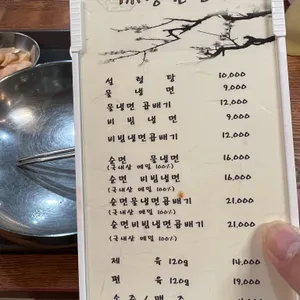 설렁탕 10,000
물냉면 9,000
물냉면곱배기 12,000
비빔냉면 9,000
비빔냉면곱배기 12,000
순면 물냉면 16,000
(국내상 메밀 100%)
순면 비빔냉면 16,000
(국내상 메밀 100%)
순면물냉면곱배기 21,000
(국내상 메밀 100%)
순면비빔냉면곱배기 21,000
(국내상 메밀 100%)
제육 120g 14,000
편육 120g 19,000
소주/맥주